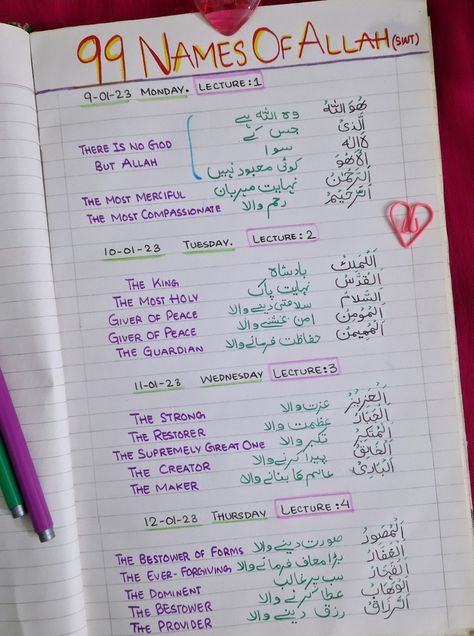 99 NAMES OF ALLAH (SWT)
9-01-23 MONDAY. LECTURE:1
THERE IS NO GOD BUT ALLAH
وہ اللہ ہے هُوَ اللهُ
جس کے الَّذِیْ
سوا لَا اِلٰهَ
کوئی معبود نہیں اِلَّا هُوَ
THE MOST MERCIFUL نہایت مہربان اَلرَّحْمٰنُ
THE MOST COMPASSIONATE رحم والا اَلرَّحِيْمُ
10-01-23 TUESDAY. LECTURE:2
THE KING بادشاہ اَلْمَلِكُ
THE MOST HOLY نہایت پاک اَلْقُدُّسُ
GIVER OF PEACE سلامتی دینے والا اَلسَّلَامُ
GIVER OF PEACE امن بخشنے والا اَلْمُؤْمِنُ
THE GUARDIAN حفاظت فرمانے والا اَلْمُهَيْمِنُ
11-01-23 WEDNESDAY LECTURE:3
THE STRONG عزت والا اَلْعَزِيْزُ
THE RESTORER عظمت والا اَلْجَبَّارُ
THE SUPREMELY GREAT ONE تکبر والا اَلْمُتَكَبِّرُ
THE CREATOR پیدا کرنے والا اَلْخَالِقُ
THE MAKER عالم کا بنانے والا اَلْبَارِئُ
12-01-23 THURSDAY LECTURE:4
THE BESTOWER OF FORMS صورت دینے والا اَلْمُصَوِّرُ
THE EVER-FORGIVING بڑا معاف فرمانے والا اَلْغَفَّارُ
THE DOMINENT سب پر غالب
THE BESTOWER عطا کرنے والا اَلْوَهَّابُ
THE PROVIDER رزق دینے والا اَلرَّزَّاقُ